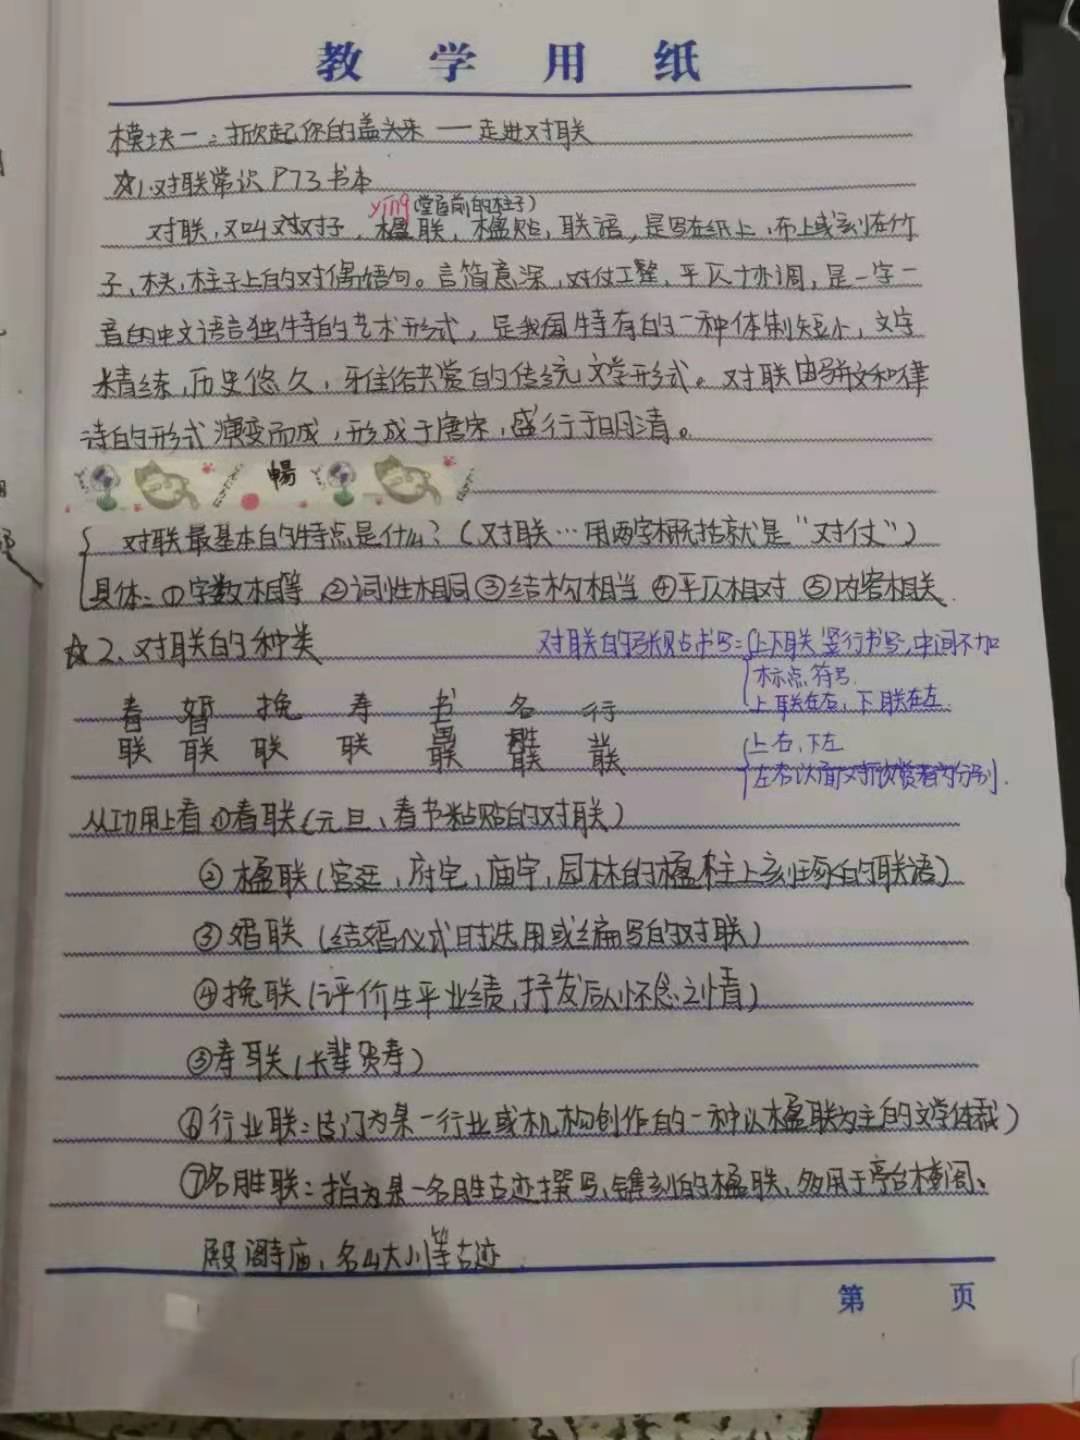 教学用纸
模块一：掀起你的盖头来——走进对联
☆1.对联常识 P73书本
yíng(堂屋前的柱子)
对联，又叫对对子，楹联，楹贴，联语，是写在纸上，布上或刻在竹
子，木头，柱子上的对偶语句。言简意深，对仗工整，平仄协调，是一字一
音的中文语言独特的艺术形式，是我国特有的一种体制短小，文字
精练，历史悠久，雅俗共赏的传统文学形式。对联由骈文和律
诗的形式演变而成，形成于唐宋，盛行于明清。
暢
对联最基本的特点是什么？(对联…用两字概括就是“对仗”)
具体：①字数相等 ②词性相同 ③结构相当 ④平仄相对 ⑤内容相关.
☆2、对联的种类
对联的张贴书写：上下联竖行书写，中间不加
标点符号.
上联在右，下联在左.
春联 婚联 挽联 寿联 书画联 名胜联 行业联
上右，下左
左右以面对欣赏者为分别.
从功用上看①春联(元旦、春节粘贴的对联)
②楹联(宫廷，府宅，庙宇，园林的楹柱上刻琢的联语)
③婚联(结婚仪式时选用或编写的对联)
④挽联(评价生平业绩，抒发后人怀念之情)
⑤寿联(长辈贺寿)
⑥行业联：专门为某一行业或机构创作的一种以楹联为主的文学体裁)
⑦名胜联：指为某一名胜古迹撰写、镌刻的楹联，多用于亭台楼阁、
殿阁寺庙，名山大川等古迹.
第 页